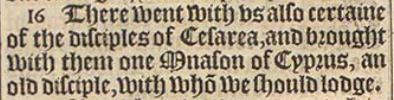 16 There went with vs also certaine
of the disciples of Cesarea, and brought
with them one Mnason of Cyprus, an
old disciple, with whõ we should lodge.